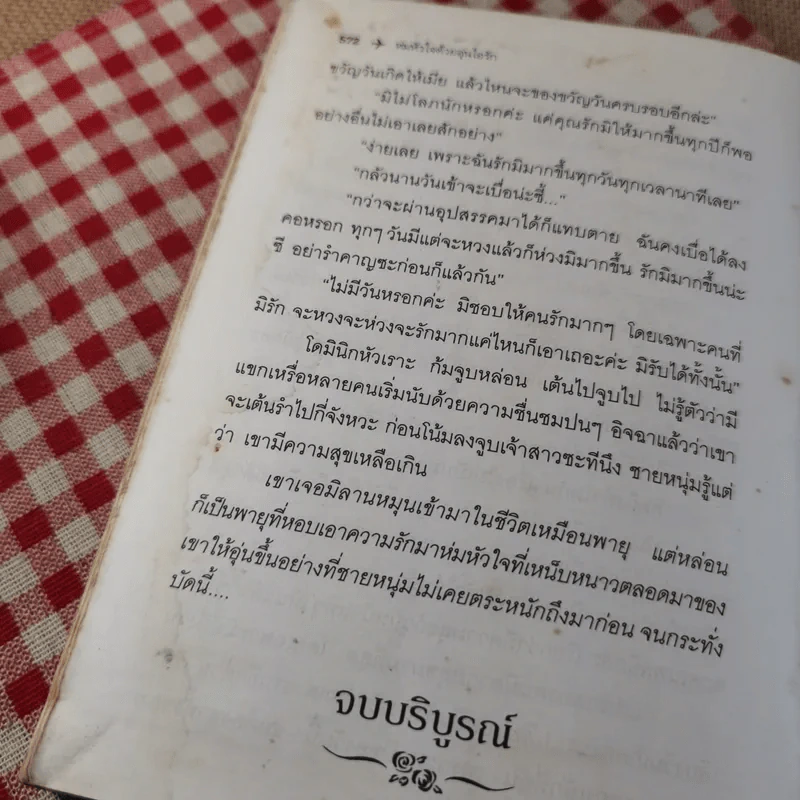 572 ห่มหัวใจด้วยอุ่นไอรัก
ขวัญวันเกิดให้เมีย แล้วไหนจะของขวัญวันครบรอบอีกล่ะ"
"มิไม่โลภนักหรอกค่ะ แค่คุณรักมิให้มากขึ้นทุกปีก็พอ
อย่างอื่นไม่เอาเลยสักอย่าง"
"ง่ายเลย เพราะฉันรักมิมากขึ้นทุกวันทุกเวลานาทีเลย"
"กลัวนานวันเข้าจะเบื่อน่ะซี้..."
"กว่าจะผ่านอุปสรรคมาได้ก็แทบตาย ฉันคงเบื่อได้ลง
คอหรอก ทุกๆ วันมีแต่จะหวงแล้วก็ห่วงมิมากขึ้น รักมิมากขึ้นน่ะ
ซี อย่ารำคาญซะก่อนก็แล้วกัน"
"ไม่มีวันหรอกค่ะ มิชอบให้คนรักมากๆ โดยเฉพาะคนที่
มิรัก จะหวงจะห่วงจะรักมากแค่ไหนก็เอาเถอะค่ะ มิรับได้ทั้งนั้น"
โดมินิกหัวเราะ ก้มจูบหล่อน เต้นไปจูบไป ไม่รู้ตัวว่ามี
แขกเหรื่อหลายคนเริ่มนับด้วยความชื่นชมปนๆ อิจฉาแล้วว่าเขา
จะเต้นรำไปกี่จังหวะ ก่อนโน้มลงจูบเจ้าสาวซะทีนึง ชายหนุ่มรู้แต่
ว่า เขามีความสุขเหลือเกิน
เขาเจอมิลานหมุนเข้ามาในชีวิตเหมือนพายุ แต่หล่อน
ก็เป็นพายุที่หอบเอาความรักมาห่มหัวใจที่เหน็บหนาวตลอดมาของ
เขาให้อุ่นขึ้นอย่างที่ชายหนุ่มไม่เคยตระหนักถึงมาก่อน จนกระทั่ง
บัดนี้....
จบบริบูรณ์